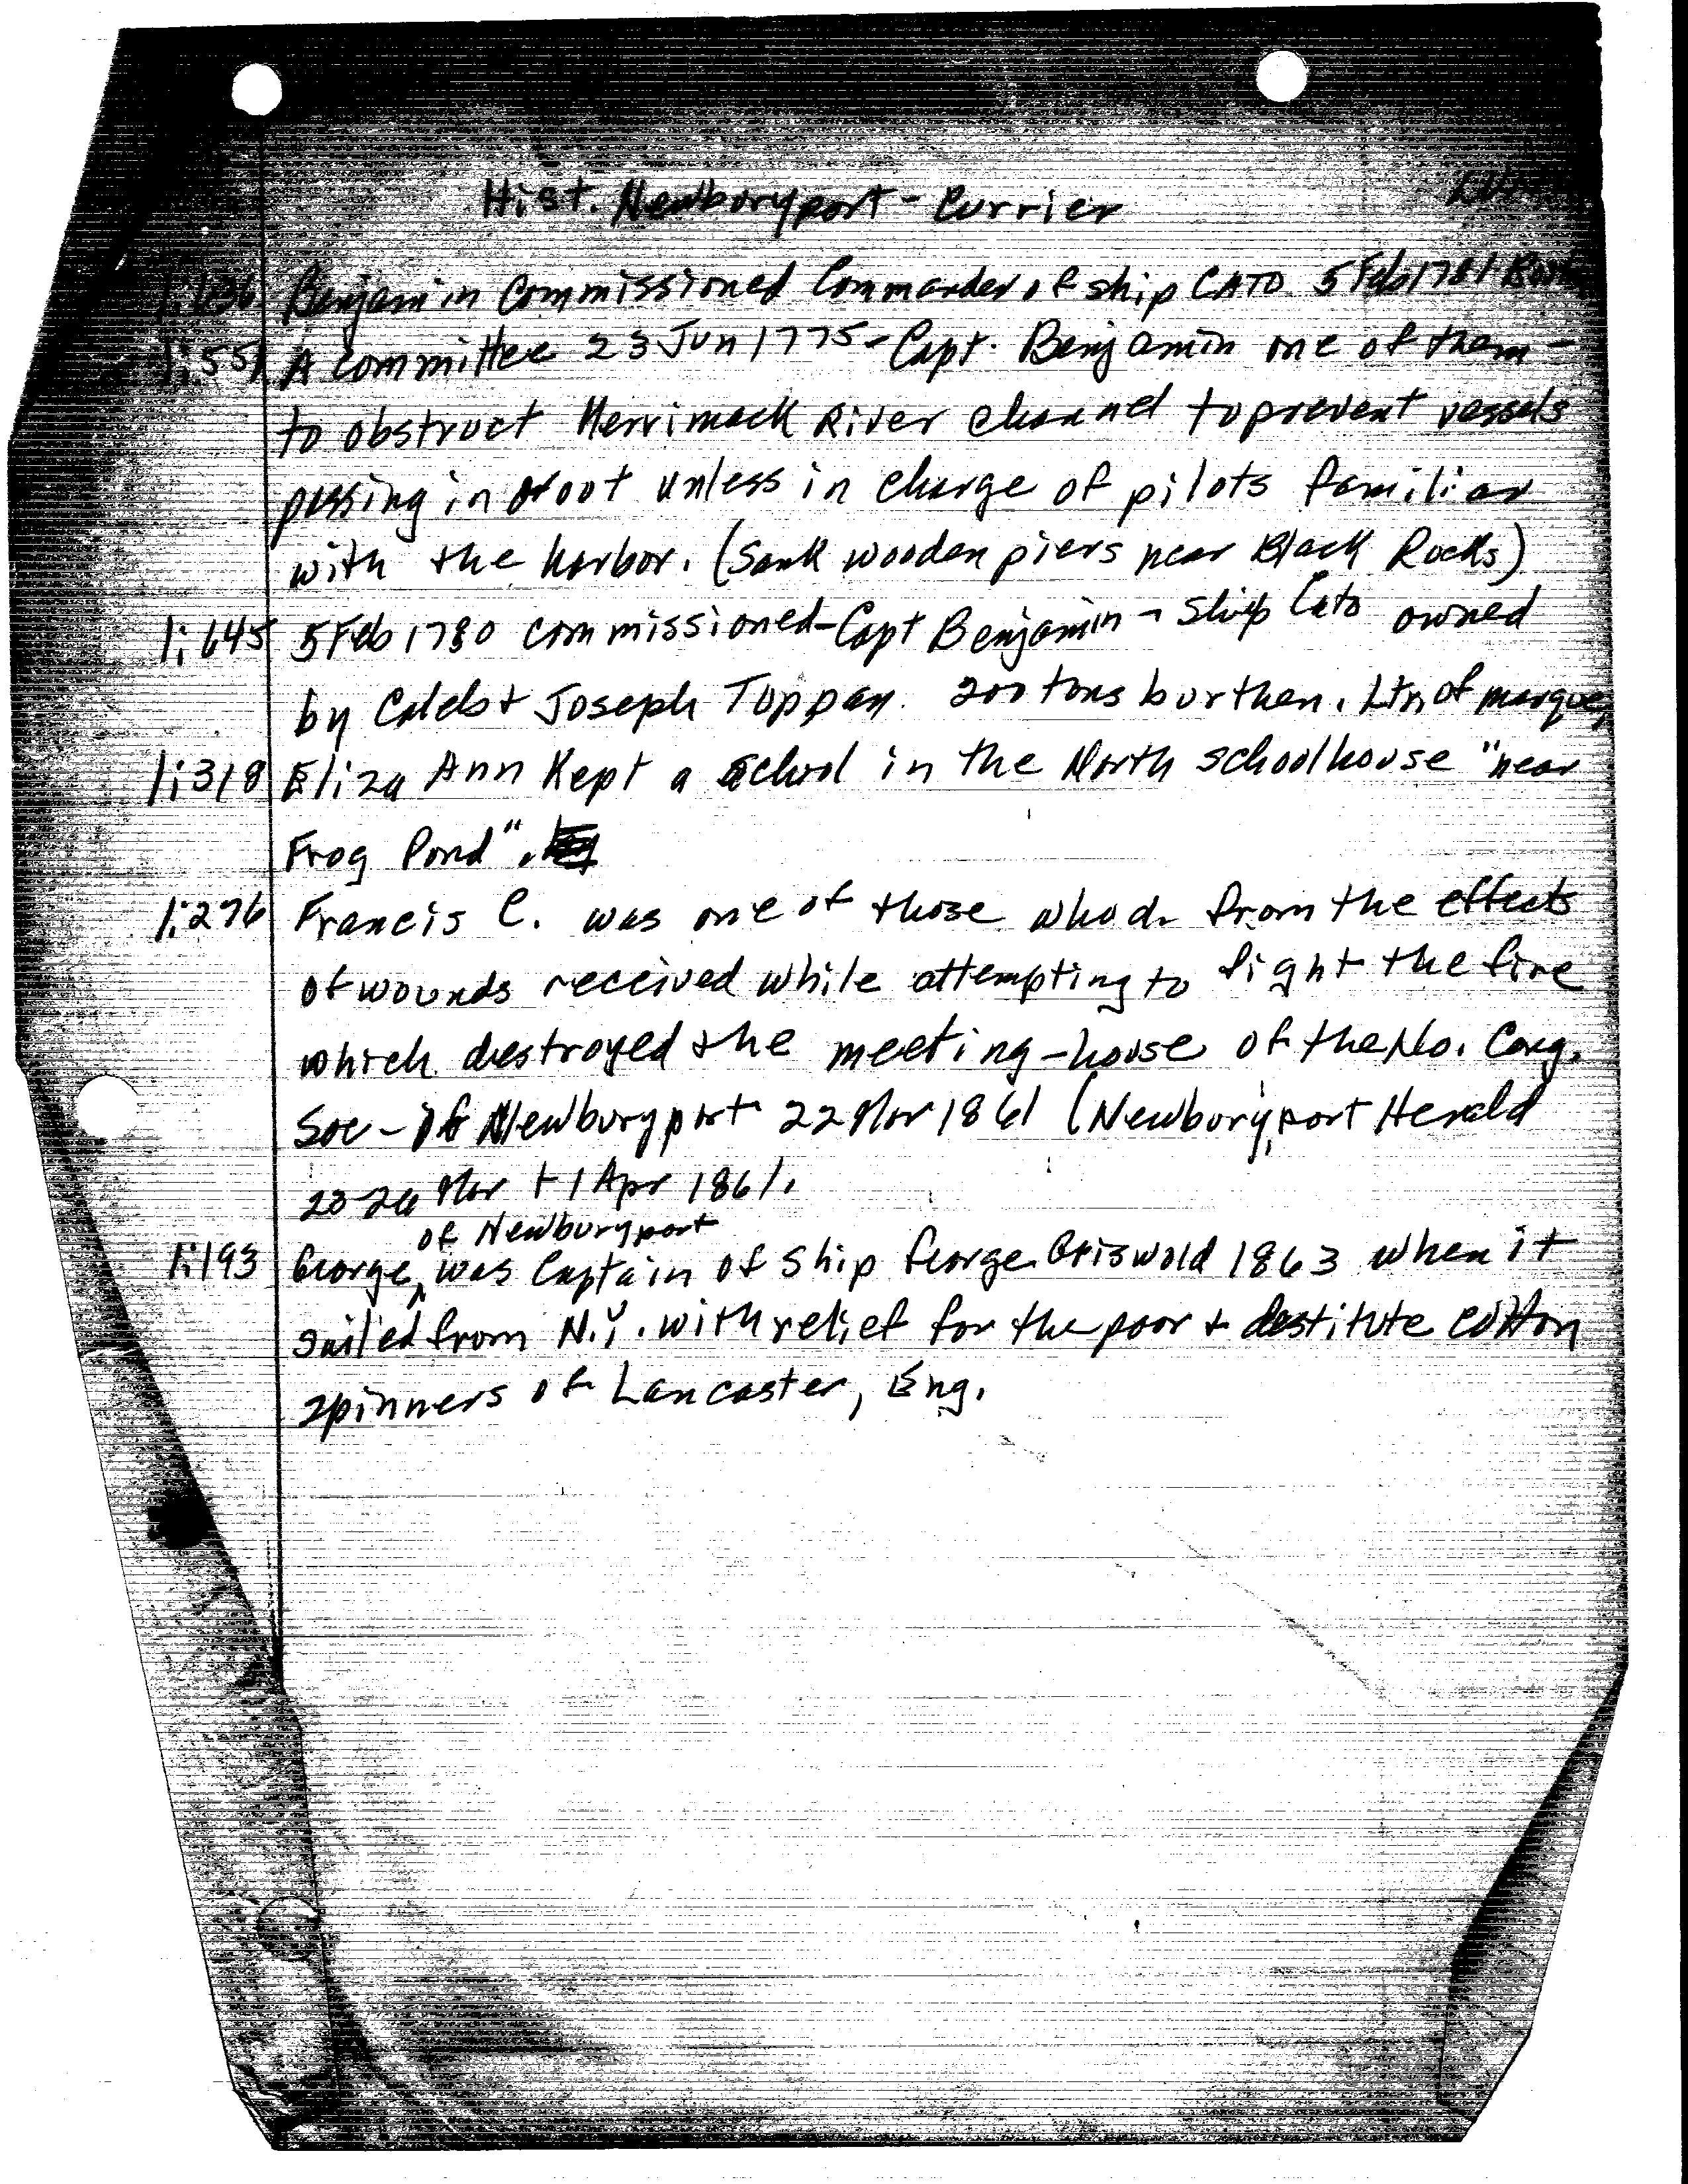 Hist. Newburyport - Currier
1:636 Benjamin Commissioned Commander of ship CATO 5 Feb 1781
1:551 A committee 23 Jun 1775 - Capt. Benjamin one of them -
to obstruct Merrimack River channel to prevent vessels
passing in or out unless in charge of pilots familiar
with the harbor. (Sank wooden piers near Black Rocks)
1:645 5 Feb 1780 commissioned - Capt Benjamin - Ship Cato owned
by Caleb + Joseph Toppan. 200 tons burthen. Ltr of marque,
1:318 Eliza Ann Kept a school in the North schoolhouse "near
Frog Pond".
1:276 Francis C. was one of those who d. from the effects
of wounds received while attempting to fight the fire
which destroyed the meeting-house of the No. Cong.
Soc - of Newburyport 22 Mar 1861 (Newburyport Herald
Mar + 1 Apr 1861.
of Newburyport
1:193 George, was Captain of Ship George Griswold 1863 when it
sailed from N.Y. with relief for the poor + destitute cotton
spinners of Lancaster, Eng.